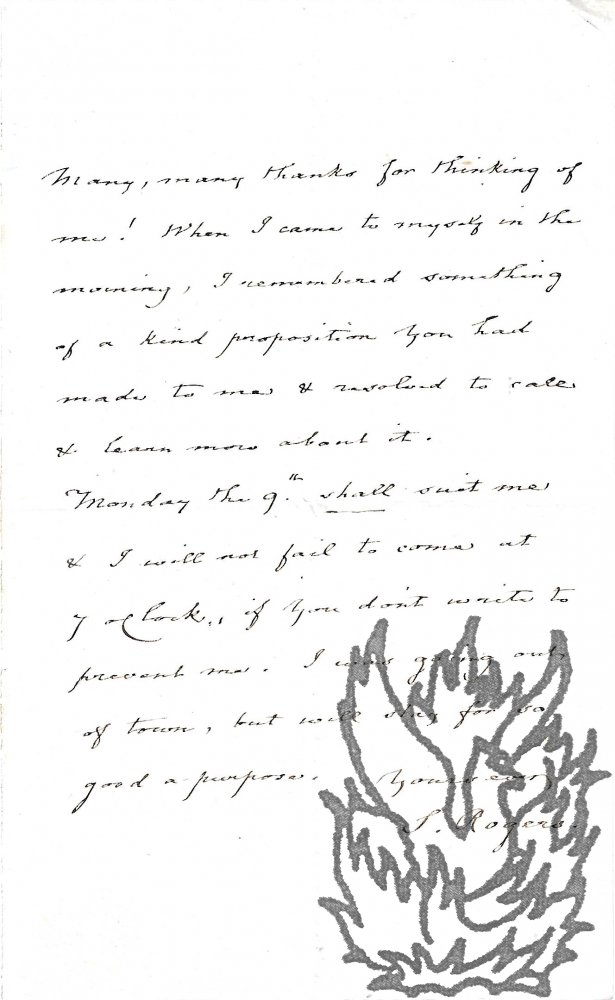 Many, many thanks for thinking of
me! When I came to myself in the
morning, I remembered something
of a kind proposition you had
made to me & resolved to call
& learn more about it.
Monday the 9.th shall suit me
& I will not fail to come at
7 o'Clock, if you don't write to
prevent me. I was going out
of town, but will stay for so
good a purpose. Yours ever
S. Rogers.